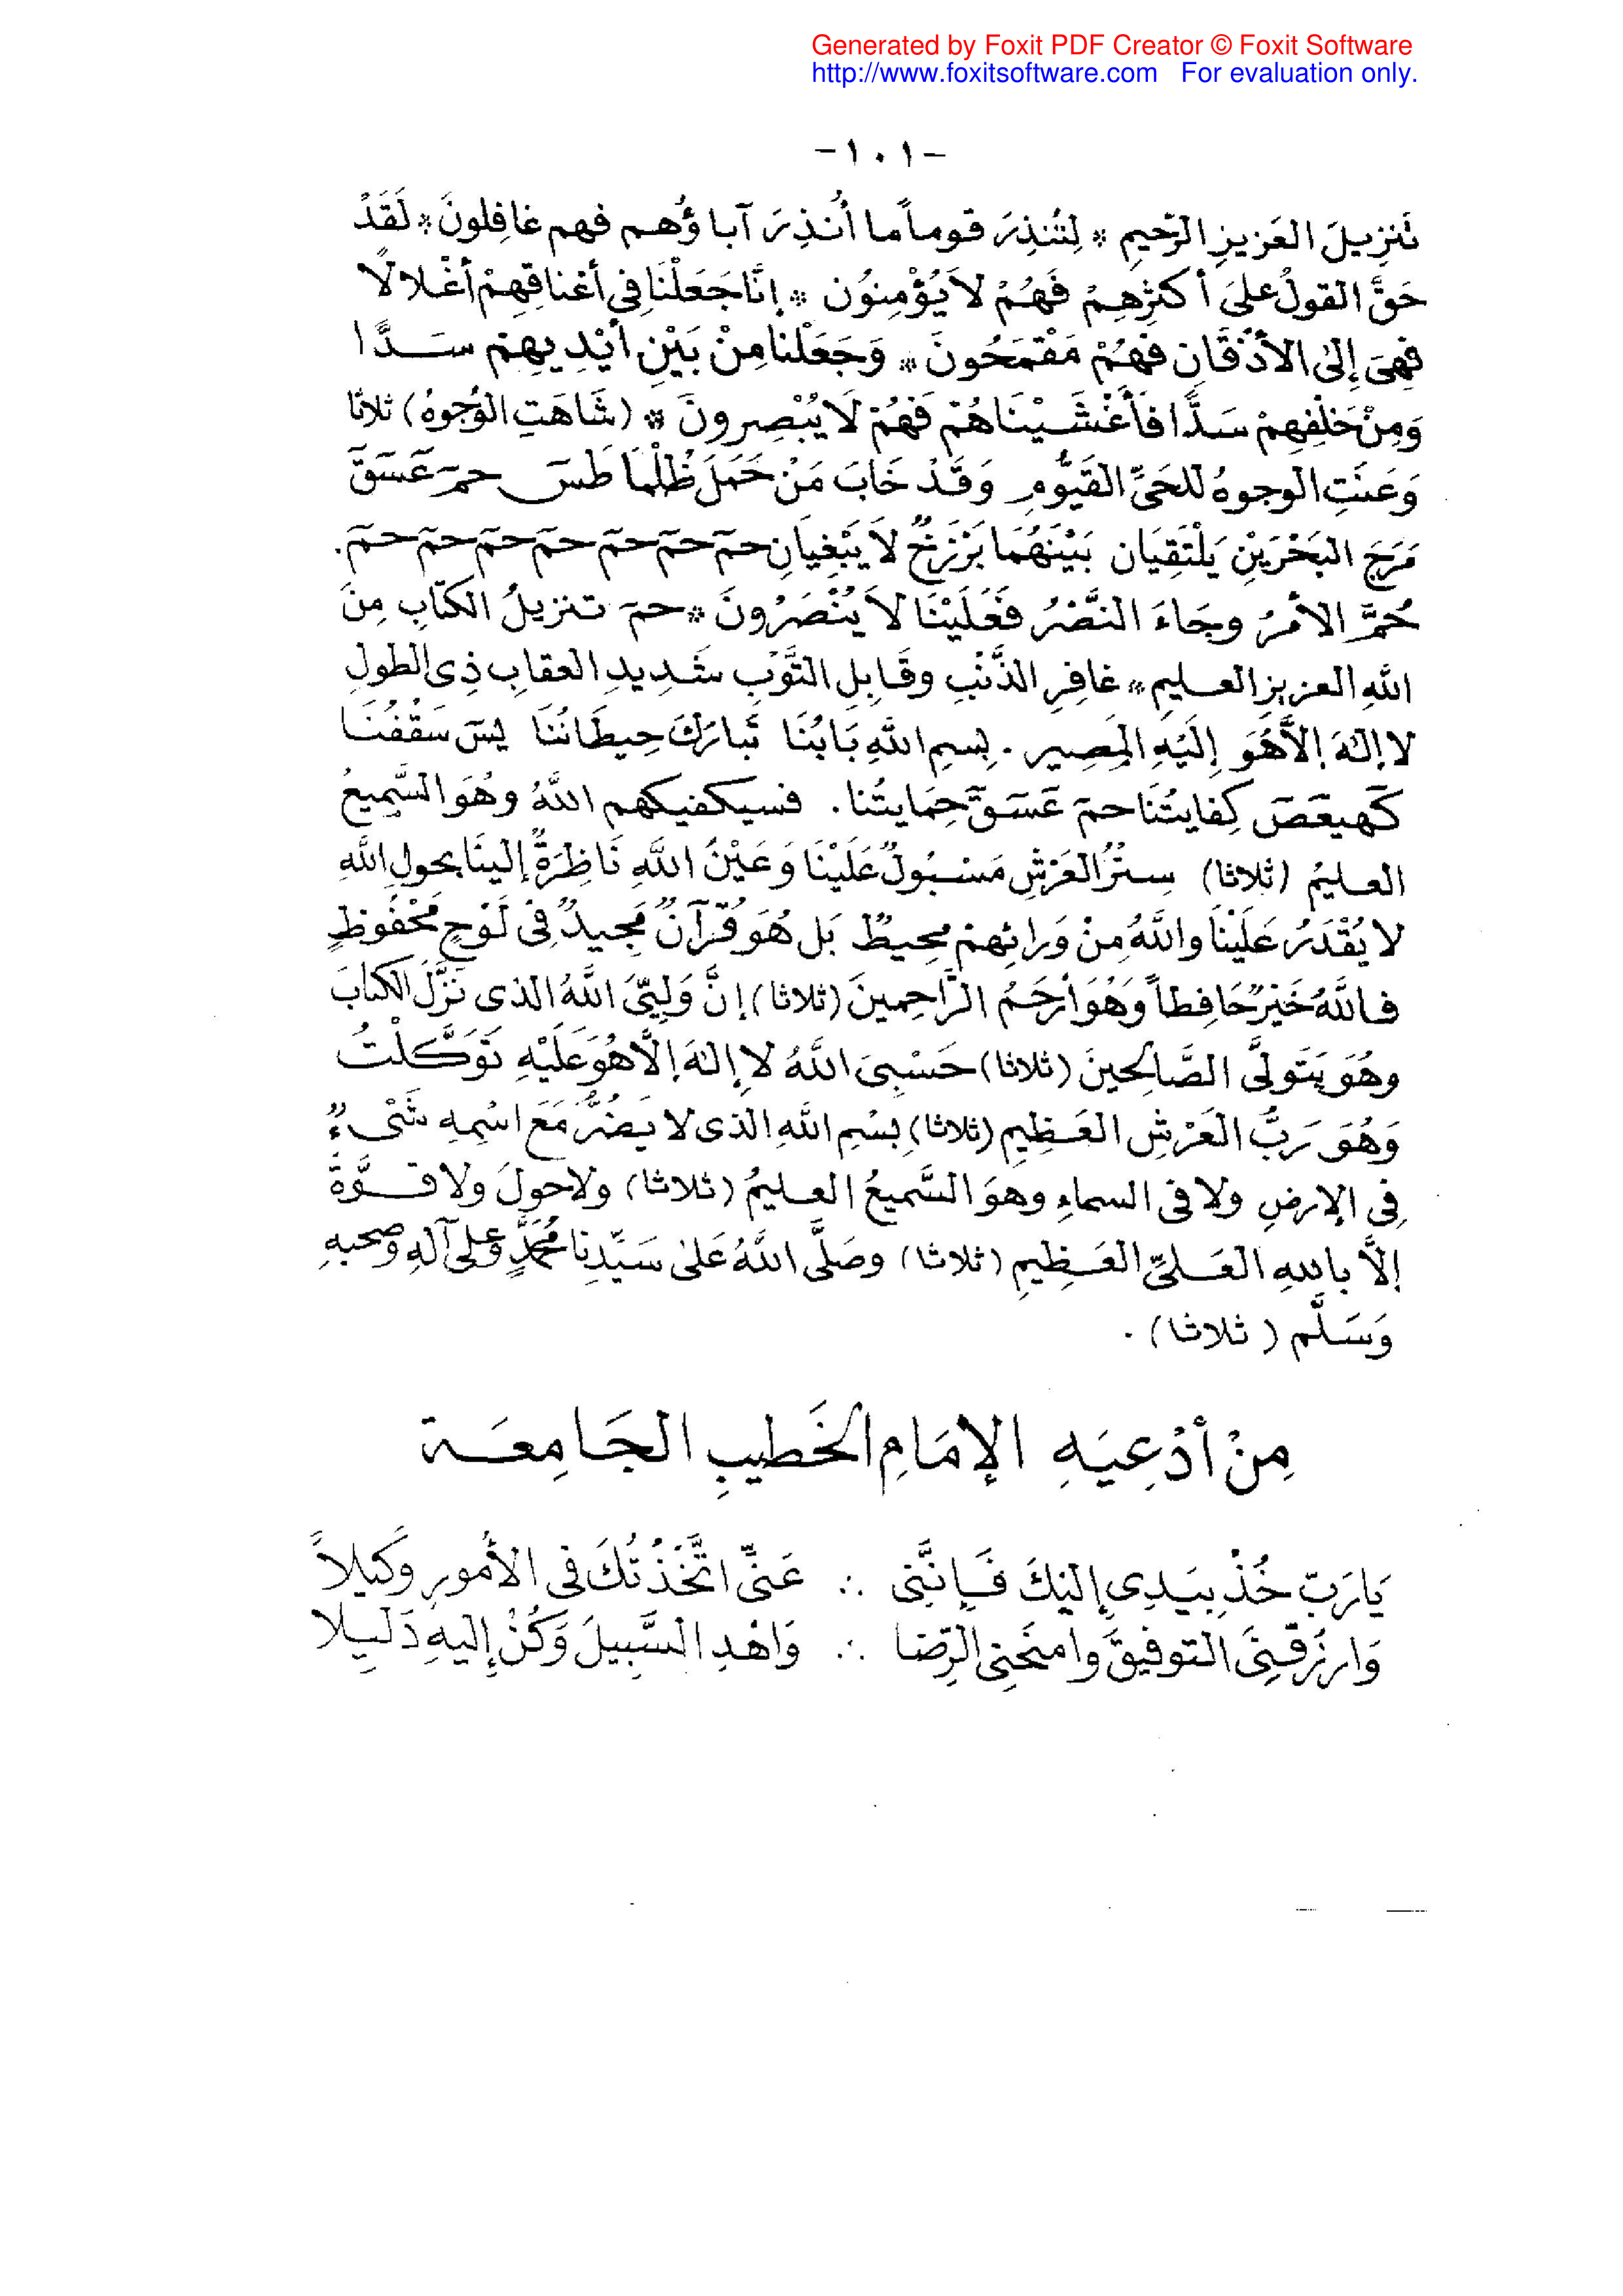 Generated by Foxit PDF Creator © Foxit Software
http://www.foxitsoftware.com For evaluation only.
-١٠١-
تَنزِيلَ العَزيزِ الرَّحيمِ * لِتُنذِرَ قوماً ما أُنذِرَ آباؤُهم فهم غافِلونَ * لَقَدْ
حَقَّ القولُ علىَ أكثرِهِمْ فَهُمْ لاَ يُؤْمِنُون * إنَّا جَعَلْنَا فِى أعْناقِهِمْ أغْلالًا
فهِىَ إِلىٰ الأذْقَانِ فهُمْ مَقْمَحُونَ * وَجَعَلْنا مِنْ بَيْنِ أيْدِيهِمْ سَدًّا
وَمِنْ خَلْفِهِمْ سَدًّا فَأَغْشَيْنَاهُمْ فَهُمْ لَا يُبْصِرونَ * (شَاهَتِ الوُجوهُ) ثلاثا
وَعَنَتِ الوجوهُ للحَىِّ القَيُّومِ وَقَدْ خَابَ مَنْ حَمَلَ ظُلْمًا طَسَ حمَ عَسَقَ
مَرَجَ البَحْرَيْنِ يَلْتَقِيَان بَيْنَهُمَا بَرْزَخٌ لاَ يَبْغِيَانِ حمَ حمَ حمَ حمَ حمَ حمَ حمَ.
حُمَّ الأمْرُ وجَاءَ النَّصْرُ فَعَلَيْنَا لاَ يُنْصَرُونَ * حمَ تنزيلُ الكتابِ مِنَ
اللهِ العزيزِ العليمِ * غافِرِ الذَّنْبِ وقَابِلِ التَّوْبِ شَدِيدِ العقابِ ذِى الطولِ
لا إلهَ إلاَّ هُوَ إِلَيْهِ المَصِير . بِسمِ اللهِ بَابُنَا تَبارَكَ حِيطَانُنَا يسَ سَقْفُنَا
كهيعَصَ كِفايتُنَا حمَ عَسَقَ حِمَايتُنا . فسيكفيكهم اللهُ وهُوَ السَّمِيعُ
العليمُ (ثلاثا) سِتْرُ العَرْشِ مَسْبُولٌ عَلَيْنَا وَعَيْنُ اللهِ نَاظِرَةٌ إلينَا بحولِ اللهِ
لا يُقْدَرُ عَلَيْنَا واللهُ مِنْ وَرائِهِمْ محِيطٌ بَل هُوَ قُرْآنٌ مَجِيدٌ فِى لَوْحٍ مَحْفُوظٍ
فاللهُ خَيْرٌ حَافِظاً وَهُوَ أَرْحَمُ الرَّاحِمينَ (ثلاثا) إنَّ وَلِيِّىَ اللهُ الذى نَزَّلَ الكتابَ
وهُوَ يَتَولىَّ الصَّالحِينَ (ثلاثا) حَسْبِىَ اللهُ لا إلهَ إلَّا هُوَ عَلَيْهِ تَوَكَّلْتُ
وَهُوَ رَبُّ العَرْشِ العَظِيمِ (ثلاثا) بِسْمِ اللهِ الذى لا يَضُرُّ مَعَ اسْمِهِ شَىْءٌ
فِى الارضِ ولا فى السماءِ وهوَ السَّميعُ العليمُ (ثلاثا) ولا حولَ ولا قوَّةَ
إلَّا باللهِ العَلىِّ العَظِيمِ (ثلاثا) وصَلَّى اللهُ عَلىٰ سَيِّدِنا مُحَمَّدٍ وعلى آلهِ وصحبهِ
وَسَلَّم (ثلاثا) .
مِنْ أدْعِيَهِ الإمَامِ الخَطيبِ الجَامِعَة
يَارَبّ خُذْ بيَدِى إِليْكَ فَإنَّنِى ∴ عَنِّى اتَّخَذْتُكَ فى الأُمورِ وَكيلاً
وَارزُقْنِىَ التوفيقَ وامنَحنِى الرِّضا ∴ وَاهْدِ السَّبِيلَ وَكُنْ إِليهِ دَليلا